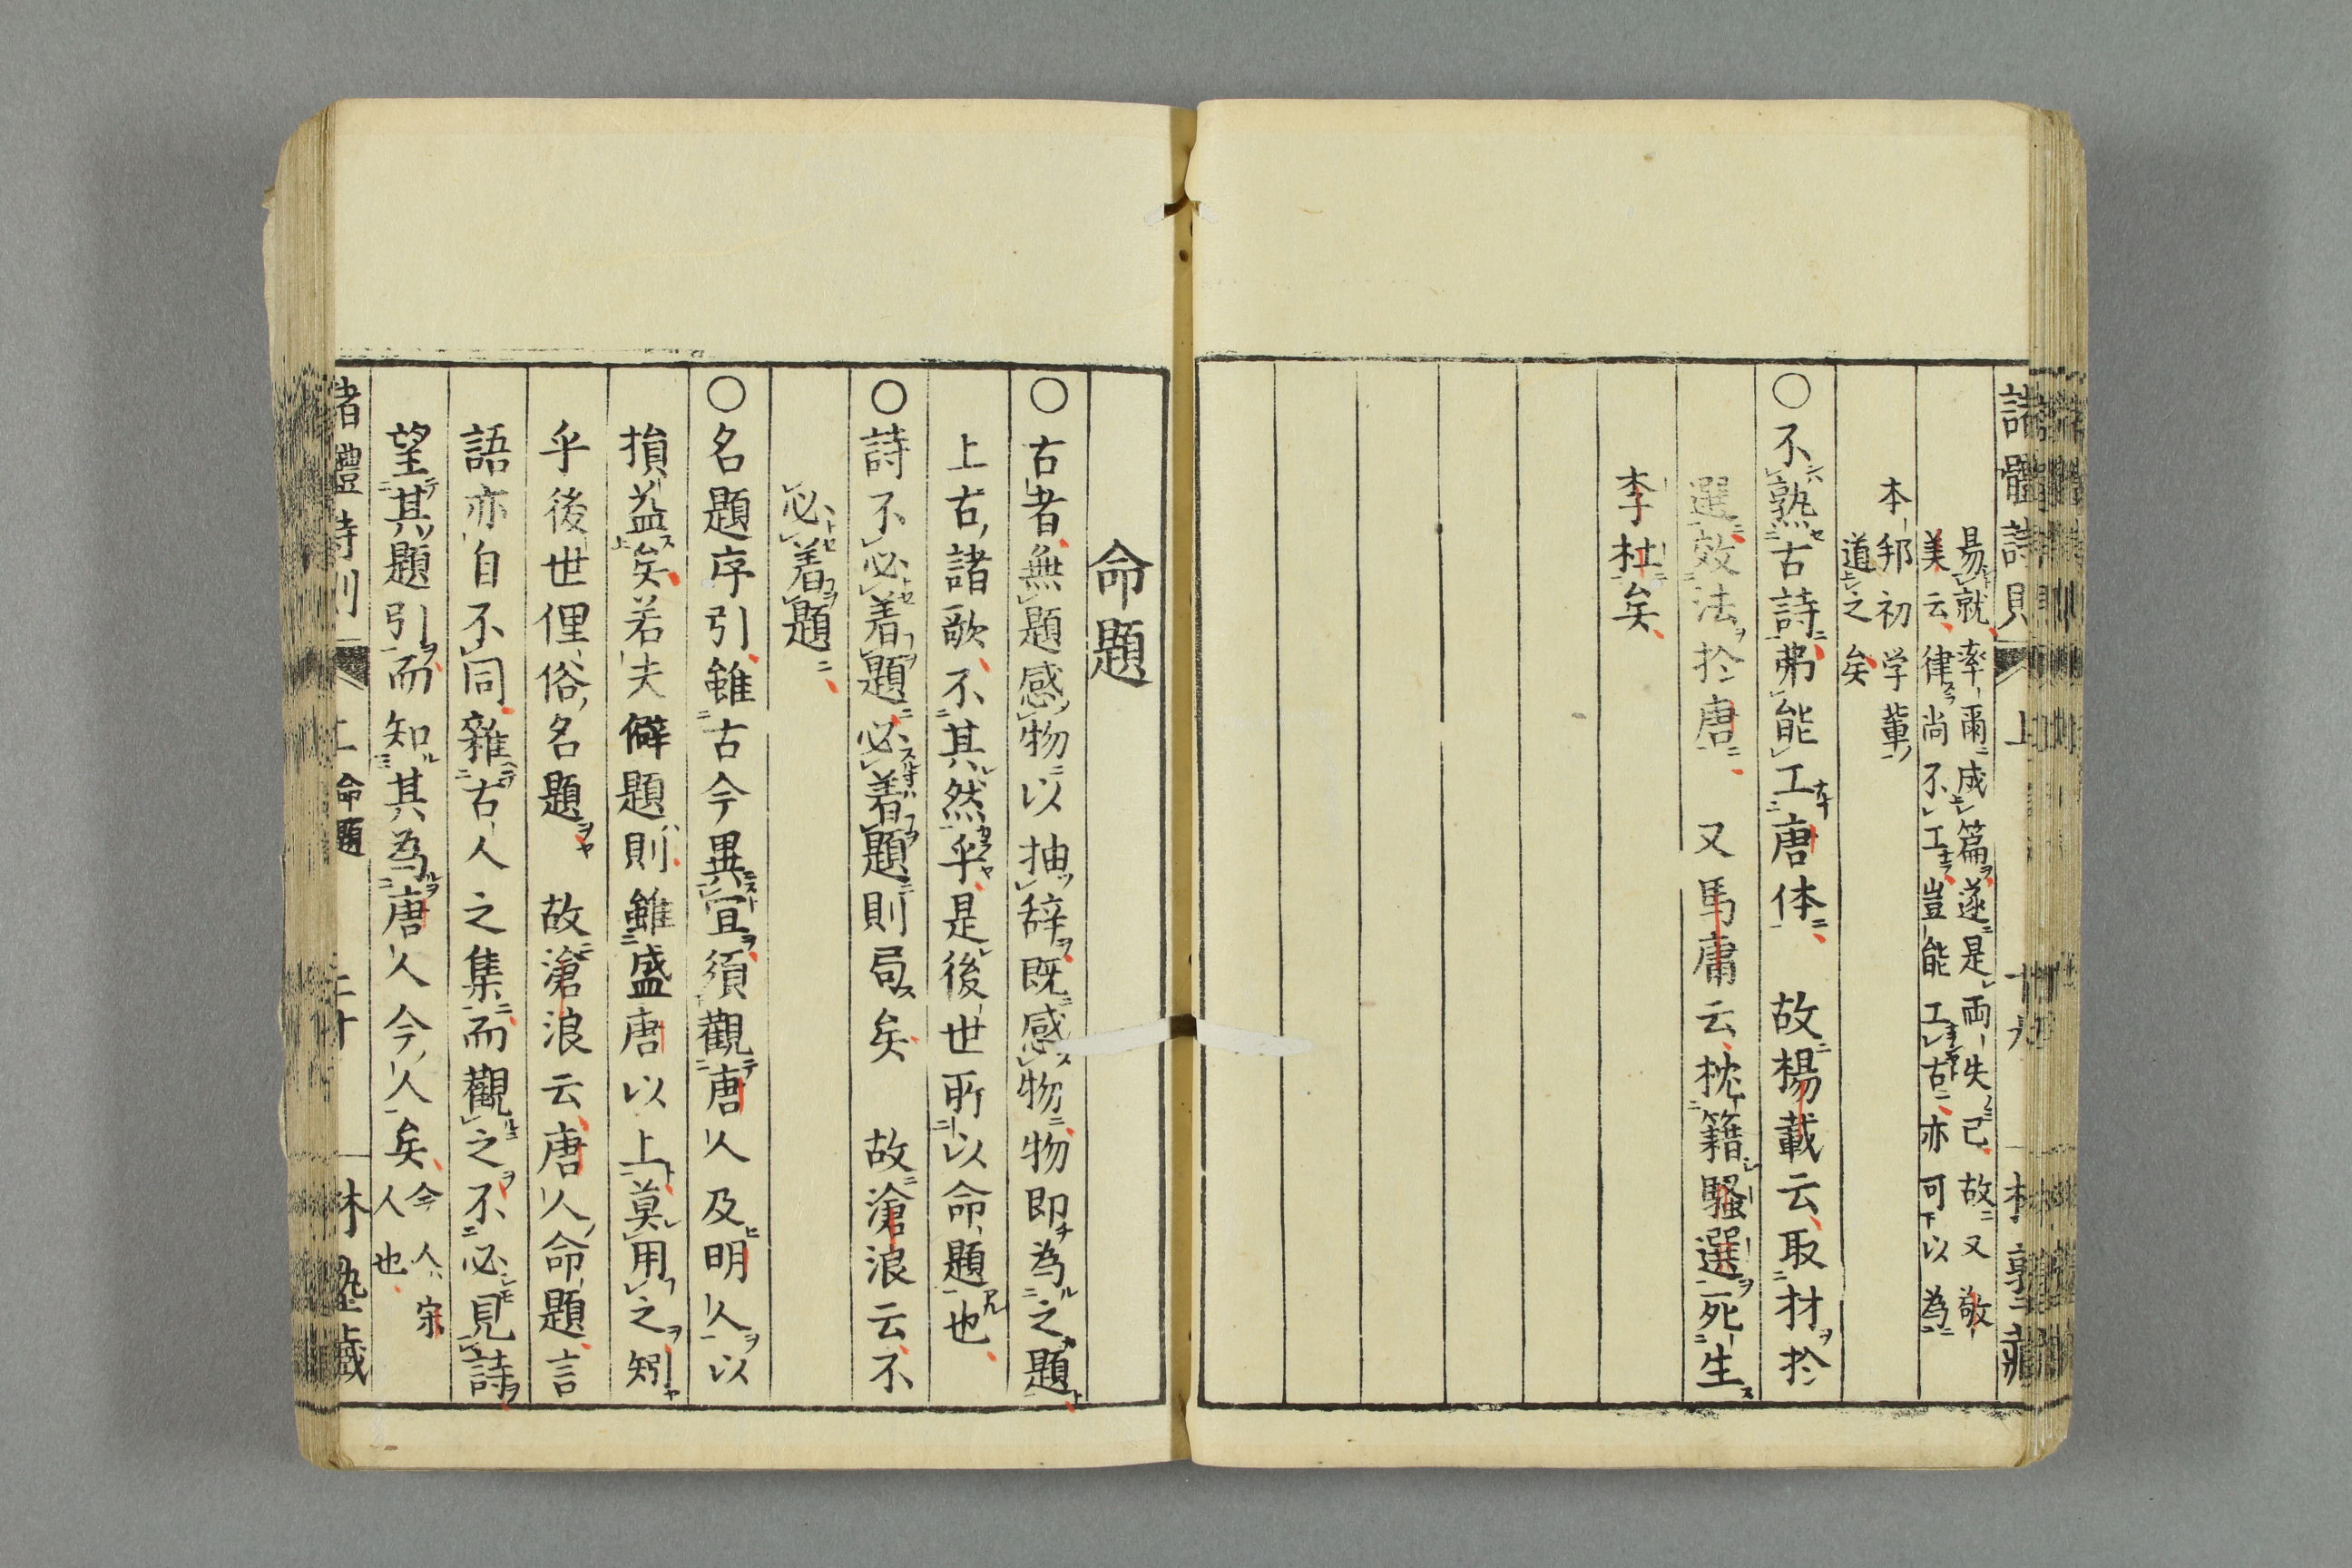 易就率爾成篇遂是両失已故又敬
美云律尚不工豈能工古亦可以為
本邦初学輩
道之矣
〇不熟古詩弗能工唐体故楊載云取材於
選效法於唐又馬庸云枕籍騷選死生
李杜矣
命題
〇古者無題感物以抽辞既感物物即為之題
上古諸歌不其然乎是後世所以命題也
〇詩不必着題必着題則局矣故滄浪云不
必着題
〇名題序引雖古今異宜須觀唐人及明人以
損益矣若夫僻題則雖盛唐以上莫用之矧
乎後世俚俗名題故滄浪云唐人命題言
語亦自不同雜古人之集而觀之不必見詩
望其題引而知其為唐人今人矣今人宋
人也
命題